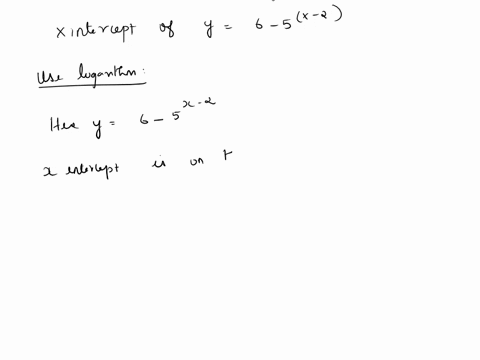 x intercept of y = 6 - 5^(x-2)
Use logarithm:
Here y = 6 - 5^x-2
x intercept is on t